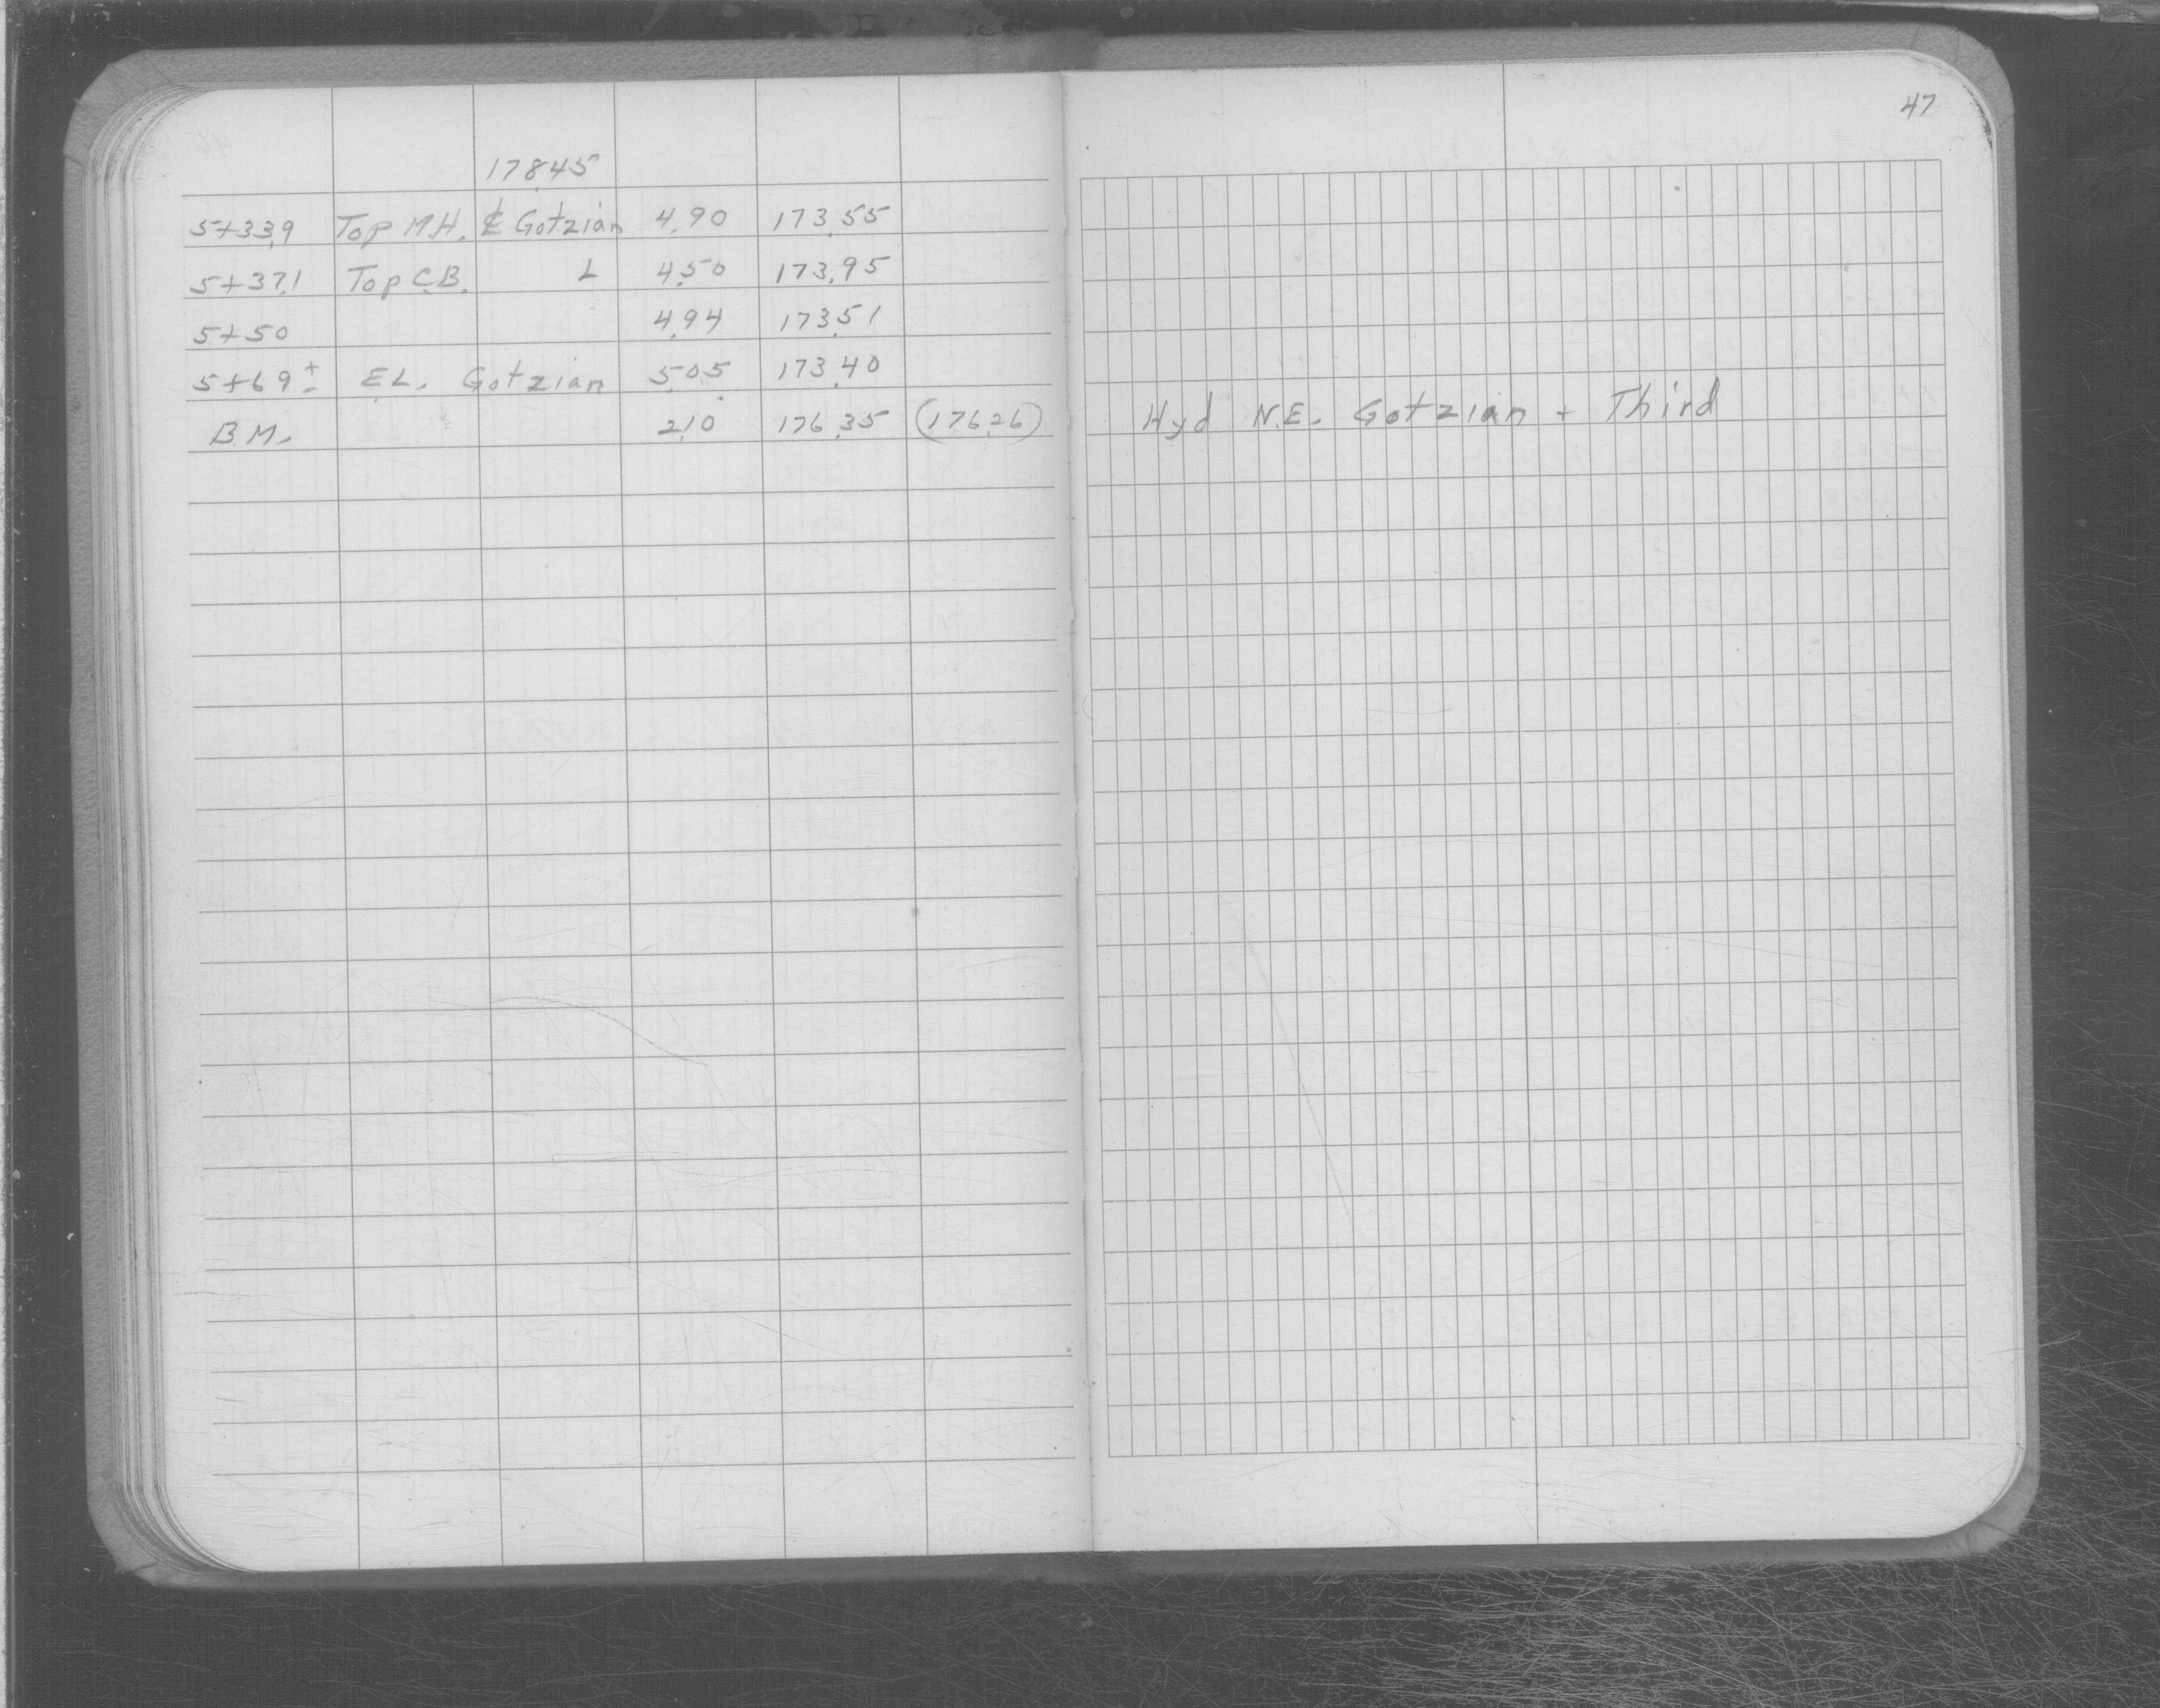 47
178.45
5+33.9 Top M.H. ₵ Gotzian 4.90 173.55
5+37.1 Top C.B. L 4.50 173.95
5+50 4.94 173.51
5+69± E.L. Gotzian 5.05 173.40
B.M. 2.10 176.35 (176.26) Hyd N.E. Gotzian + Third